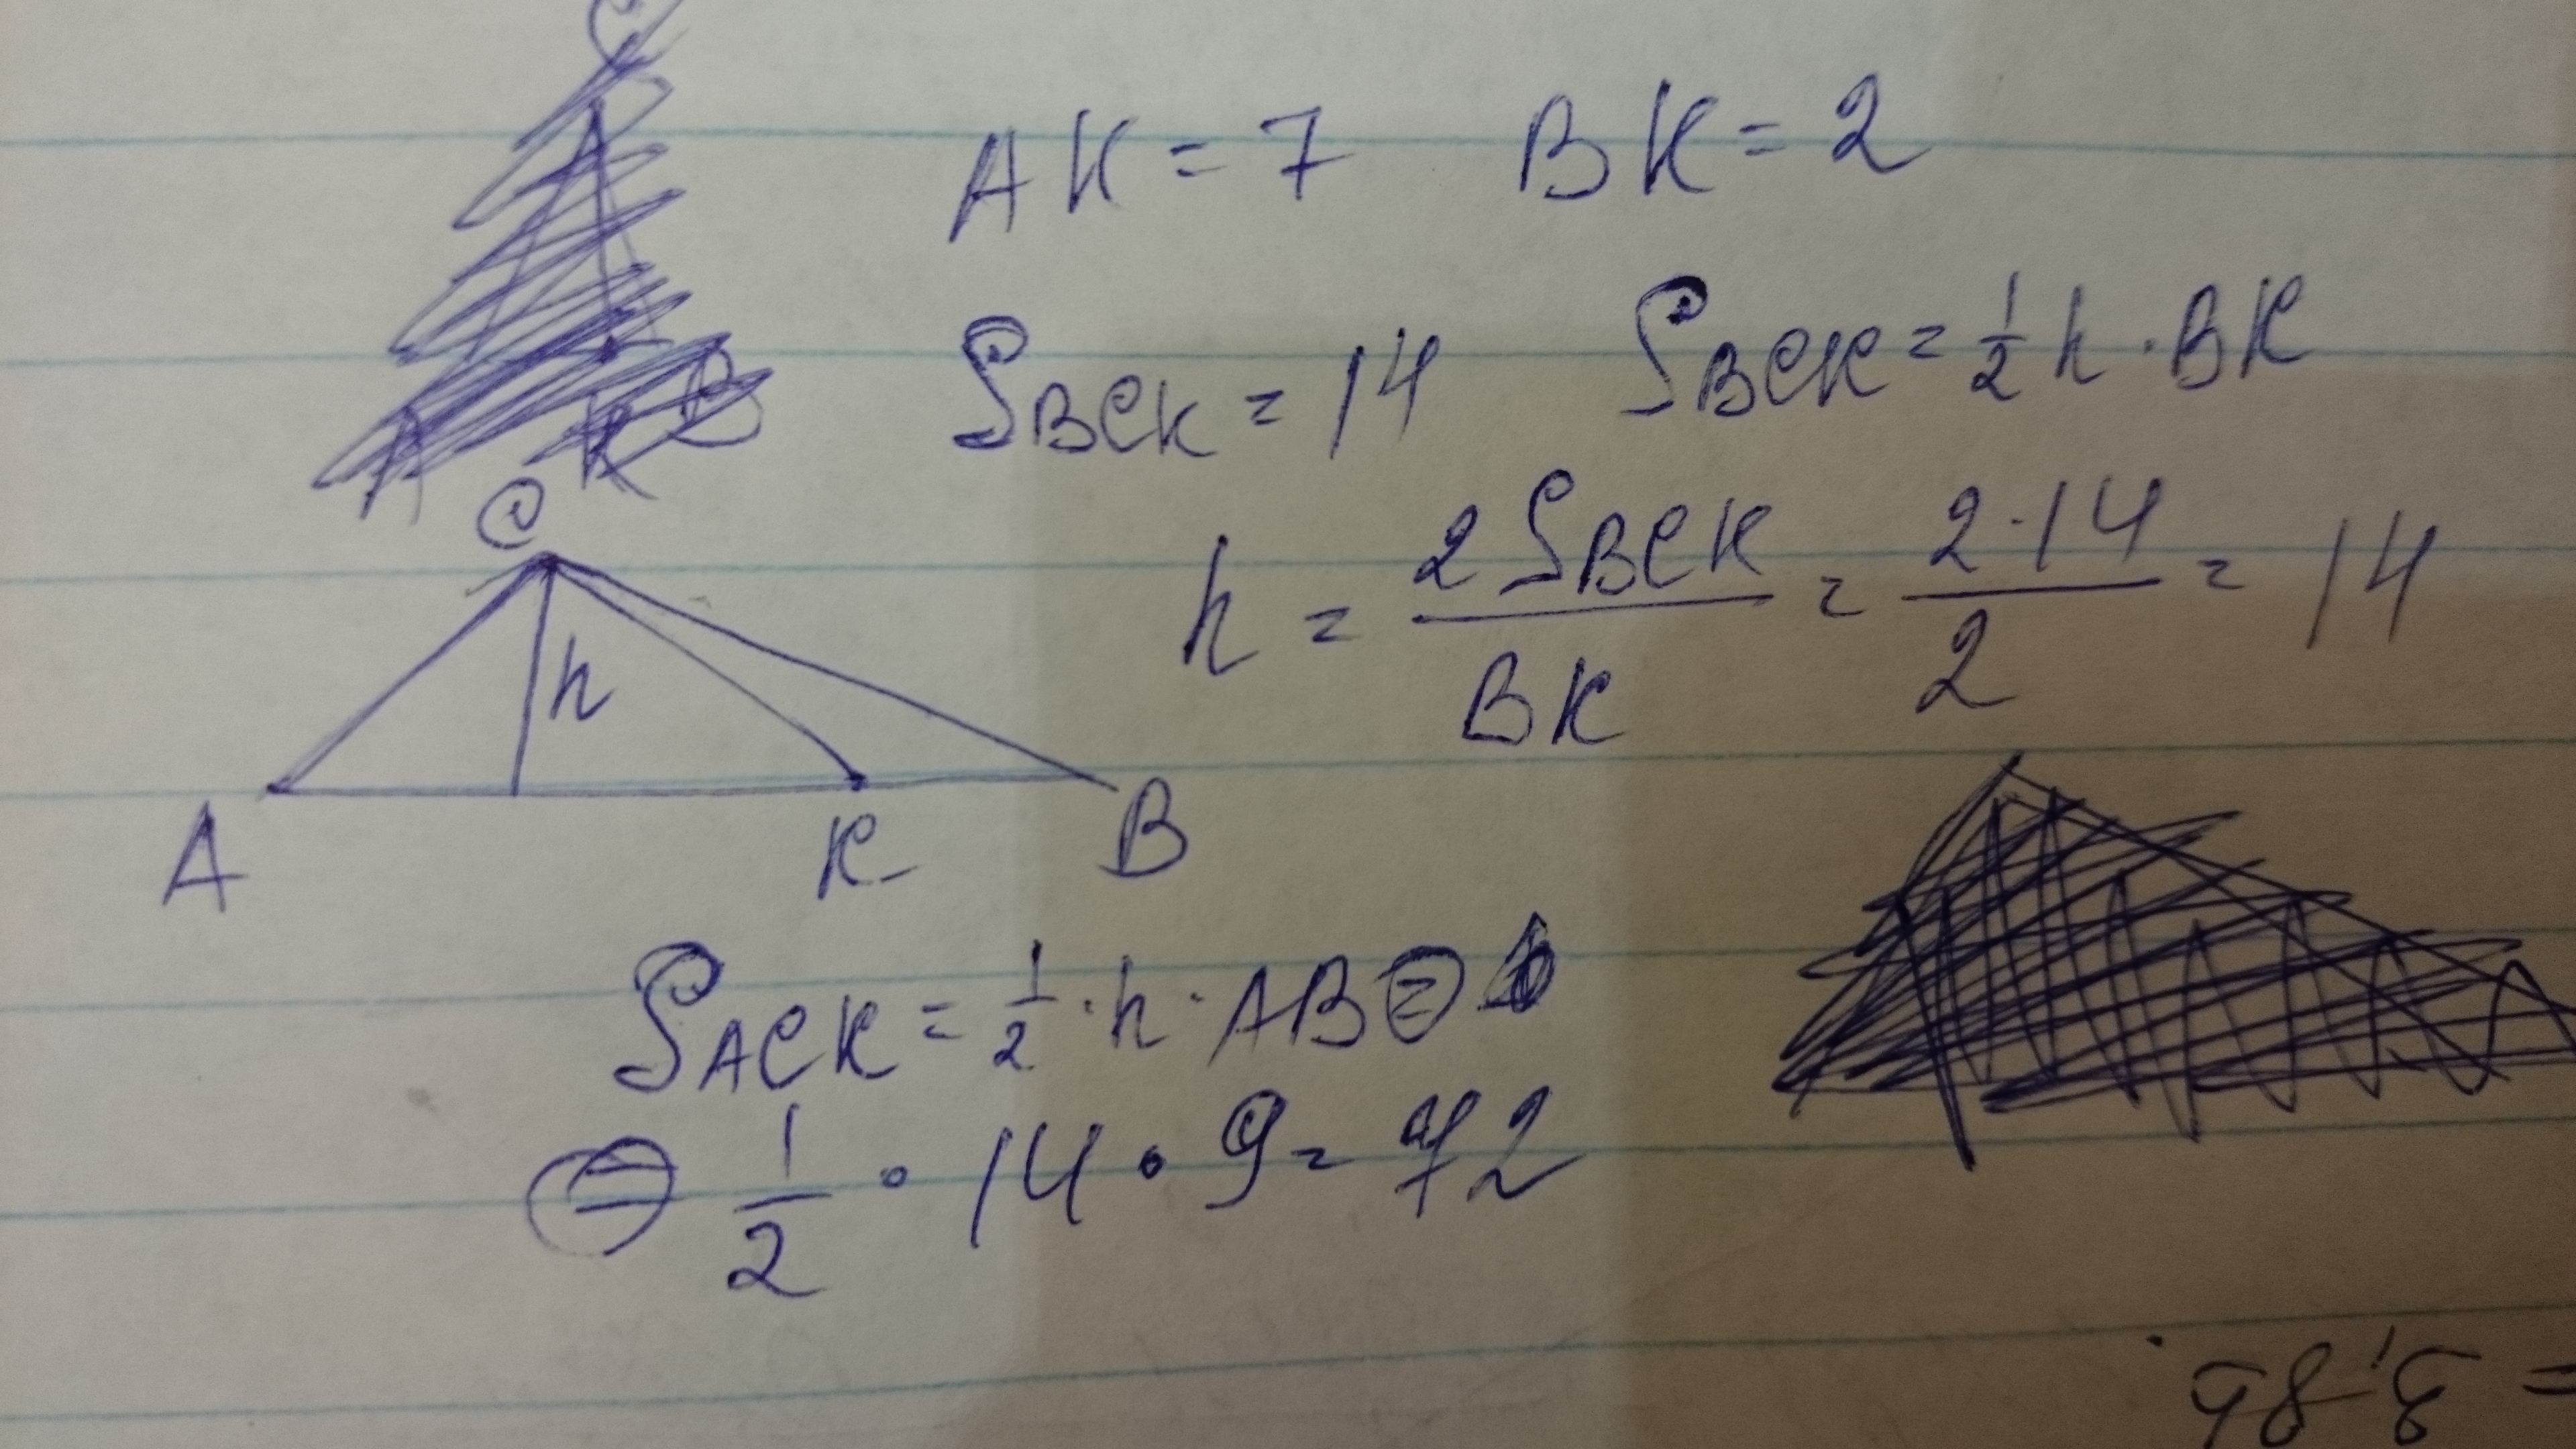 AK = 7 BK = 2
S_BCK = 14 S_BCK = 1/2 h · BK
h = 2S_BCK / BK = 2·14 / 2 = 14
C
h
A K B
S_ACK = 1/2 · h · AB =
= 1/2 · 14 · 9 = 72